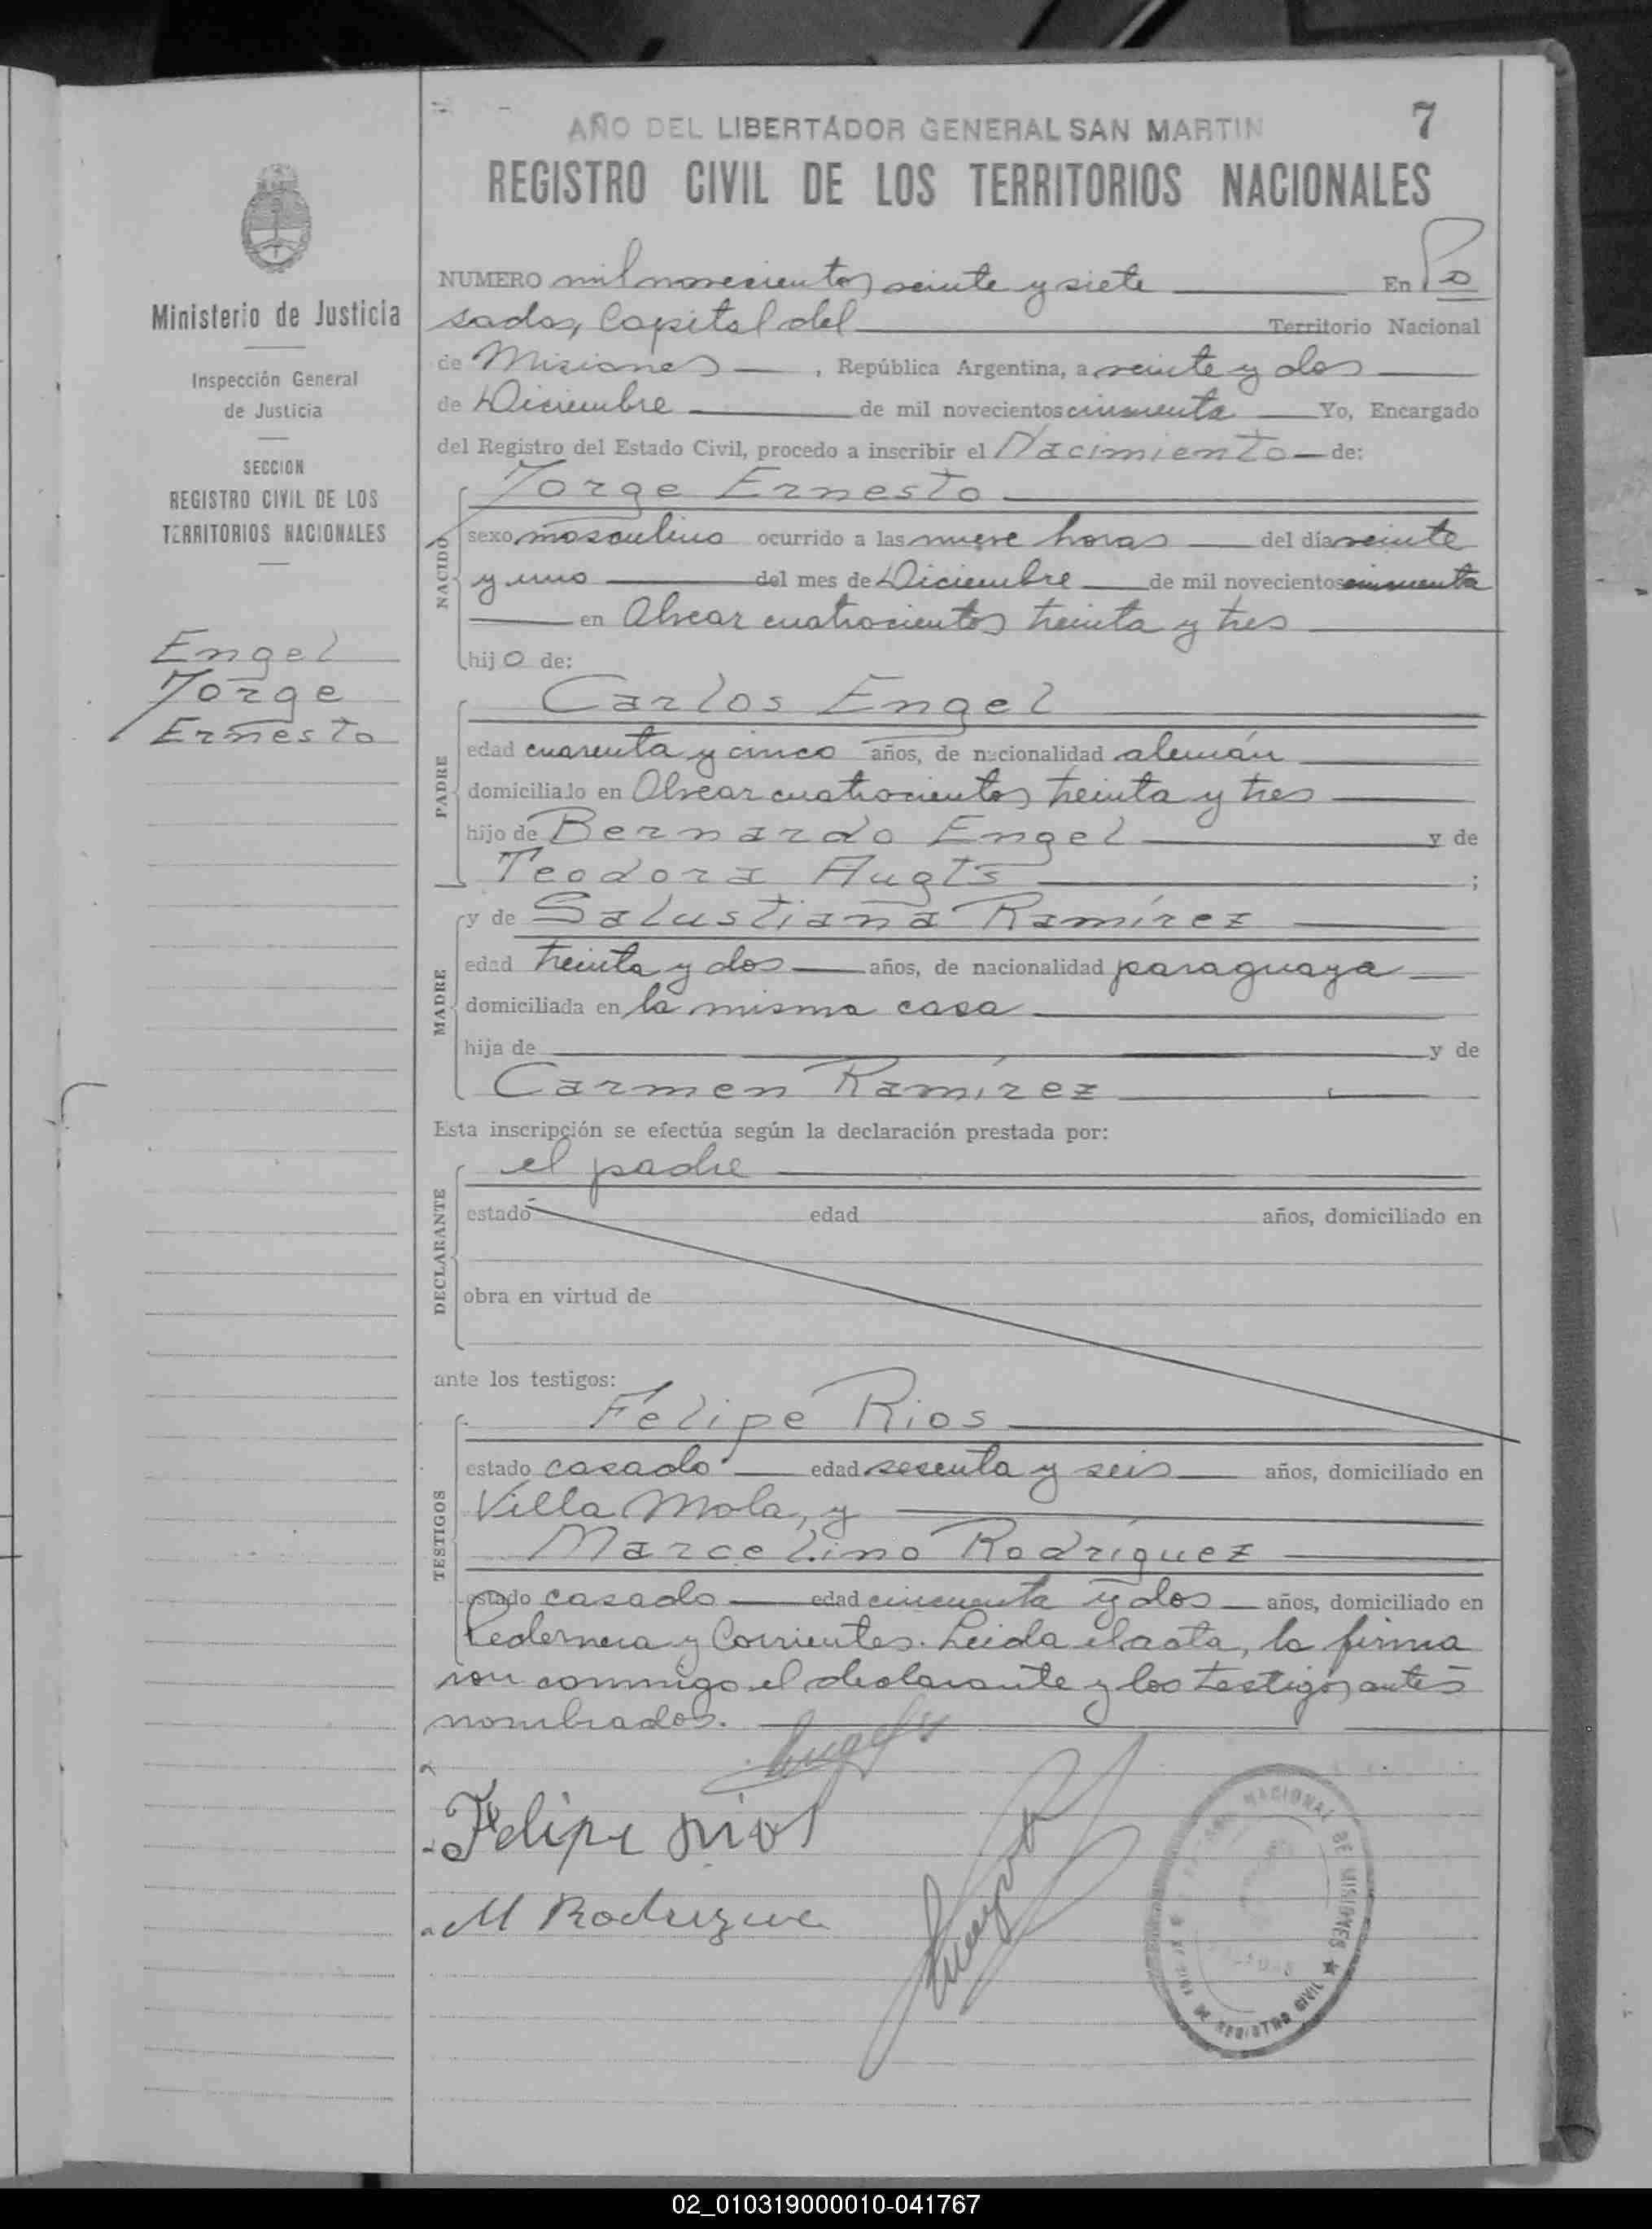 7
AÑO DEL LIBERTADOR GENERAL SAN MARTIN
REGISTRO CIVIL DE LOS TERRITORIOS NACIONALES
Ministerio de Justicia
Inspección General
de Justicia
SECCION
REGISTRO CIVIL DE LOS
TERRITORIOS NACIONALES
Engel
Jorge
Ernesto
NUMERO mil novecientos veinte y siete En Po
sadas, Capital del Territorio Nacional
de Misiones, República Argentina, a veinte y dos
de Diciembre de mil novecientos cincuenta Yo, Encargado
del Registro del Estado Civil, procedo a inscribir el Nacimiento de:
NACIDO
Jorge Ernesto
sexo masculino ocurrido a las nueve horas del día veinte
y uno del mes de Diciembre de mil novecientos cincuenta
en Alvear cuatrocientos treinta y tres
hijo de:
PADRE
Carlos Engel
edad cuarenta y cinco años, de nacionalidad alemán
domiciliado en Alvear cuatrocientos treinta y tres
hijo de Bernardo Engel y de
Teodora Augts;
MADRE
y de Salustiana Ramírez
edad treinta y dos años, de nacionalidad paraguaya
domiciliada en la misma casa
hija de y de
Carmen Ramírez
Esta inscripción se efectúa según la declaración prestada por:
DECLARANTE
el padre
estado edad años, domiciliado en
obra en virtud de
ante los testigos:
TESTIGOS
Felipe Rios
estado casado edad sesenta y seis años, domiciliado en
Villa Mola, y
Marcelino Rodríguez
estado casado edad cincuenta y dos años, domiciliado en
Pedernera y Corrientes. Leida el acta, la firma
ron conmigo el declarante y los testigos antes
nombrados.
Felipe rios
M Rodrigue
NACIONAL DE MISIONES ★
DE REGISTRO CIVIL
02_010319000010-041767